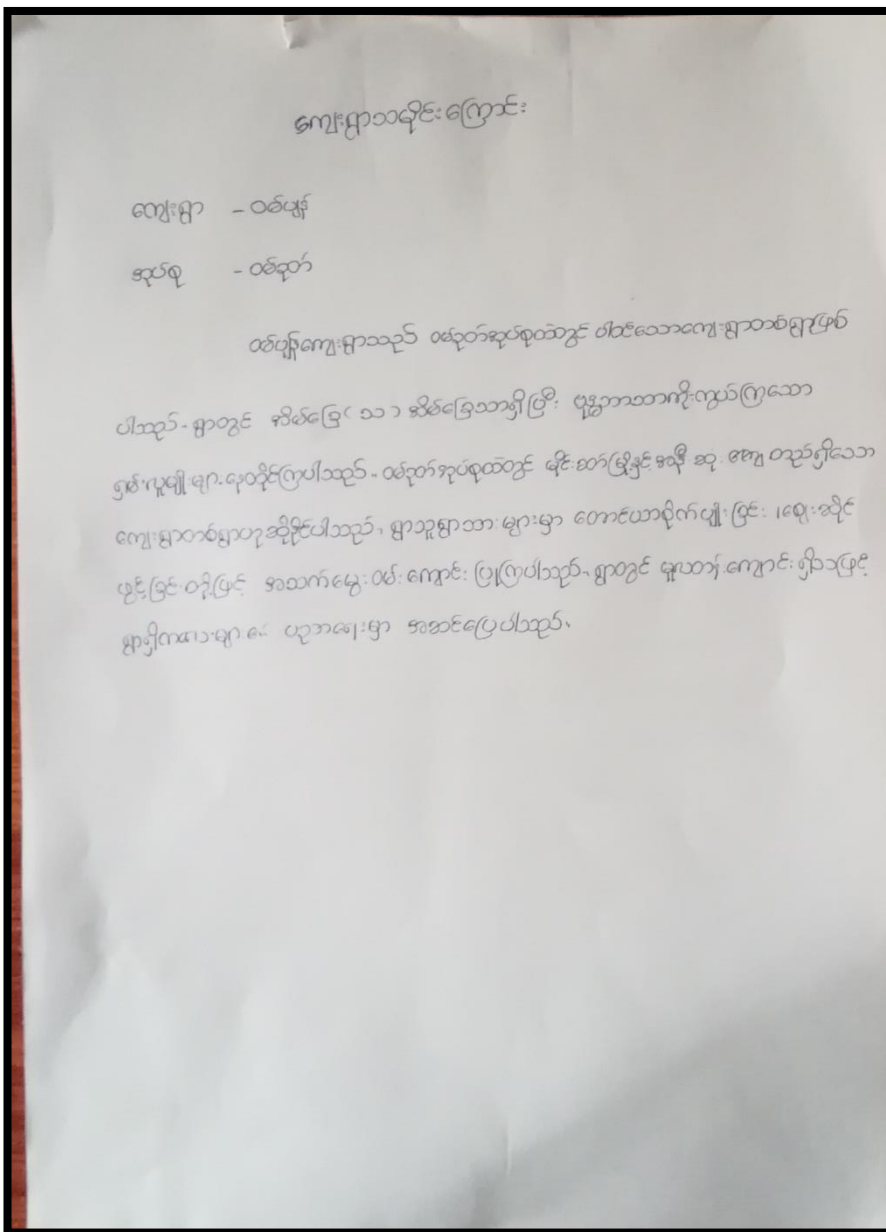 ကျေးရွာသမိုင်းကြောင်း
ကျေးရွာ - ဝမ်ပျန်
အုပ်စု - ဝမ်ဒုတ်
ဝမ်ပျန်ကျေးရွာသည် ဝမ်ဒုတ်အုပ်စုထဲတွင် ပါဝင်သောကျေးရွာတစ်ရွာဖြစ်
ပါသည်။ ရွာတွင် အိမ်ခြေ( ၁၁ ) အိမ်ခြေသာရှိပြီး ဗုဒ္ဓဘာသာကိုးကွယ်ကြသော
ရှမ်းလူမျိုးများနေထိုင်ကြပါသည်။ ဝမ်ဒုတ်အုပ်စုထဲတွင် မိုင်းဆတ်မြို့နှင့် အနီးဆုံး တည်ရှိသော
ကျေးရွာတစ်ရွာဟုဆိုနိုင်ပါသည်။ ရွာသူရွာသားများမှာ တောင်ယာစိုက်ပျိုးခြင်း ၊ဈေးဆိုင်
ဖွင့်ခြင်းတို့ဖြင့် အသက်မွေးဝမ်းကျောင်းပြုကြပါသည်။ ရွာတွင် မူလတန်းကျောင်းရှိသဖြင့်
ရွာရှိကလေးများ ပညာရေးမှာ အဆင်ပြေပါသည်။